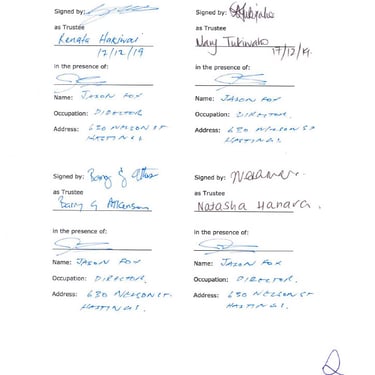 Signed by:
as Trustee
Renata Hakiwai
12/12/19
in the presence of:
Name: JASON FOX
Occupation: DIRECTOR
Address: 630 NELSON ST
HASTINGS
Signed by:
as Trustee
17/12/19.
in the presence of:
Name: JASON FOX
Occupation: DIRECTOR.
Address: 630 NELSON ST
HASTINGS.
Signed by: Barry G
as Trustee
Barry G Atkinson
in the presence of:
Name: JASON FOX
Occupation: DIRECTOR.
Address: 630 NELSON ST.
HASTINGS.
Signed by:
as Trustee
Natasha Hanara.
in the presence of:
Name: JASON FOX
Occupation: DIRECTOR.
Address: 630 NELSON ST
HASTINGS.